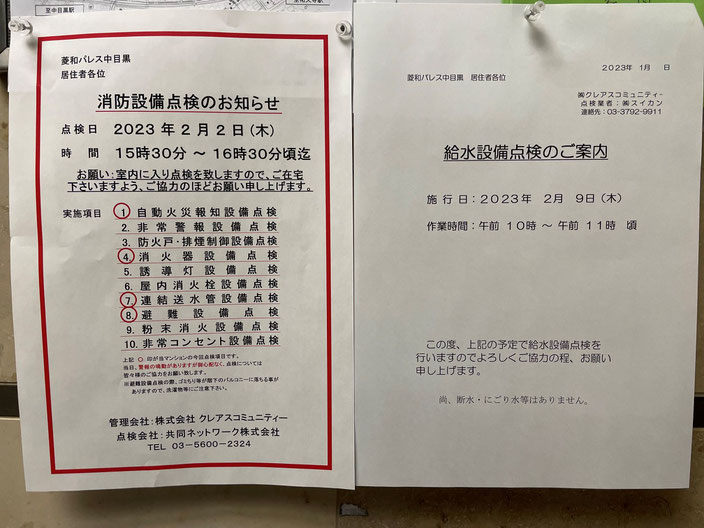 至中目黒駅
菱和パレス中目黒
居住者各位
消防設備点検のお知らせ
点検日 2023年2月2日(木)
時間 15時30分 ~ 16時30分頃迄
お願い:室内に入り点検を致しますので、ご在宅
下さいますよう、ご協力のほどお願い申し上げます。
実施項目 1. 自動火災報知設備点検
2. 非常警報設備点検
3. 防火戸・排煙制御設備点検
4. 消火器設備点検
5. 誘導灯設備点検
6. 屋内消火栓設備点検
7. 連結送水管設備点検
8. 避難設備点検
9. 粉末消火設備点検
10. 非常コンセント設備点検
上記 ○ 印が当マンションの今回点検項目です。
当日、警報の鳴動がありますが御心配なく、点検については
皆々様のご協力をお願い致します。
※避難設備点検の際、ゴミちり等が階下のバルコニーに落ちる事が
ありますので、洗濯物等にご注意下さい。
管理会社:株式会社 クレアスコミュニティー
点検会社:共同ネットワーク株式会社
TEL 03-5600-2324
2023年 1月 日
菱和パレス中目黒 居住者各位
㈱クレアスコミュニティー
点検業者:㈱スイカン
連絡先:03-3792-9911
給水設備点検のご案内
施行日:2023年 2月 9日(木)
作業時間:午前 10時 ~ 午前 11時 頃
この度、上記の予定で給水設備点検を
行いますのでよろしくご協力の程、お願い
申し上げます。
尚、断水・にごり水等はありません。